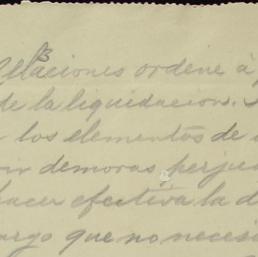 Relaciones ordene à
de la liquidacion.
los elementos de
demoras perju
hacer efectiva la d
argo que no necesi